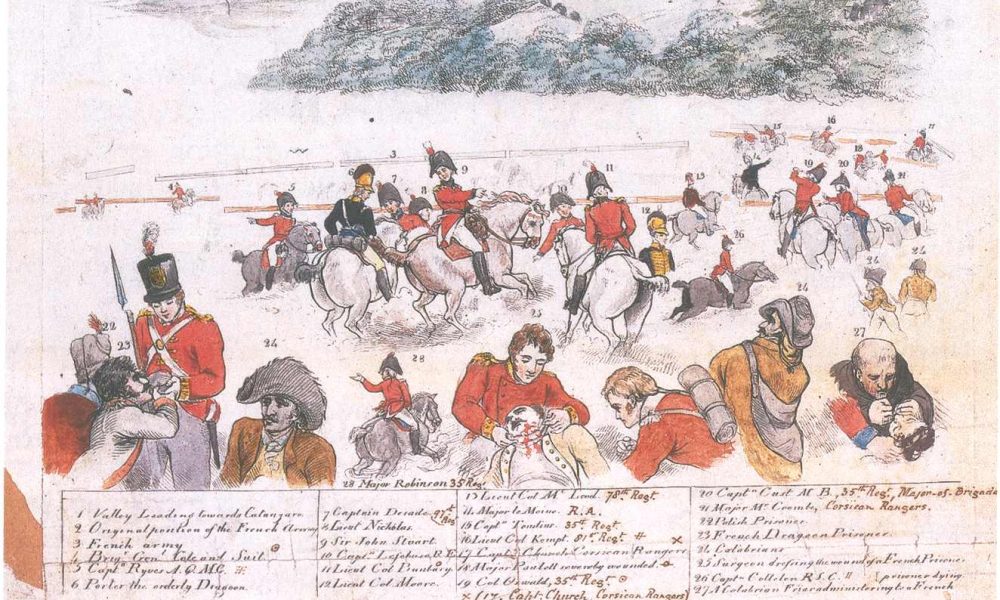 15
16
17
3
9
4
5
7
8
10
11
13
14
18
19
20
21
12
26
24
24
22
23
24
25
24
27
28
28 Major Robinson 35 Regt
1 Valley Leading towards Catanzaro
2 Original position of the French Army
3 French army
4 Brig. Genl. Cole and Suit
5 Capt. Ryves A.Q.M.G.
6 Porter the orderly Dragoon.
7 Captain 27t Regt
8 Lieut Nicholas.
9 Sir John Stuart.
10 Captn Lefebure R.E.
11 Lieut Col Bunbury
12 Lieut Col Moore.
13 Lieut Col Mc Leod. 78th Regt
14 Major le Moine. R.A.
15 Captn Tomlins. 35th Regt
16 Lieut Col Kempt. 81st Regt
17 Captn Church Corsican Rangers
18 Major Paulett severely wounded.
19 Col Oswald, 35th Regt
x (17, Capt. Church, Corsican Rangers)
20 Captn Cust M.B., 35th Regt, Major-of-Brigade
21 Major Mc Combe, Corsican Rangers.
22 Polish Prisoner
23 French Dragoon Prisoner.
24 Calabrians
25 Surgeon dressing the wound of a French Prisoner.
26 Captn R.S.C.
27 A Calabrian Friar administering to a French
prisoner dying.